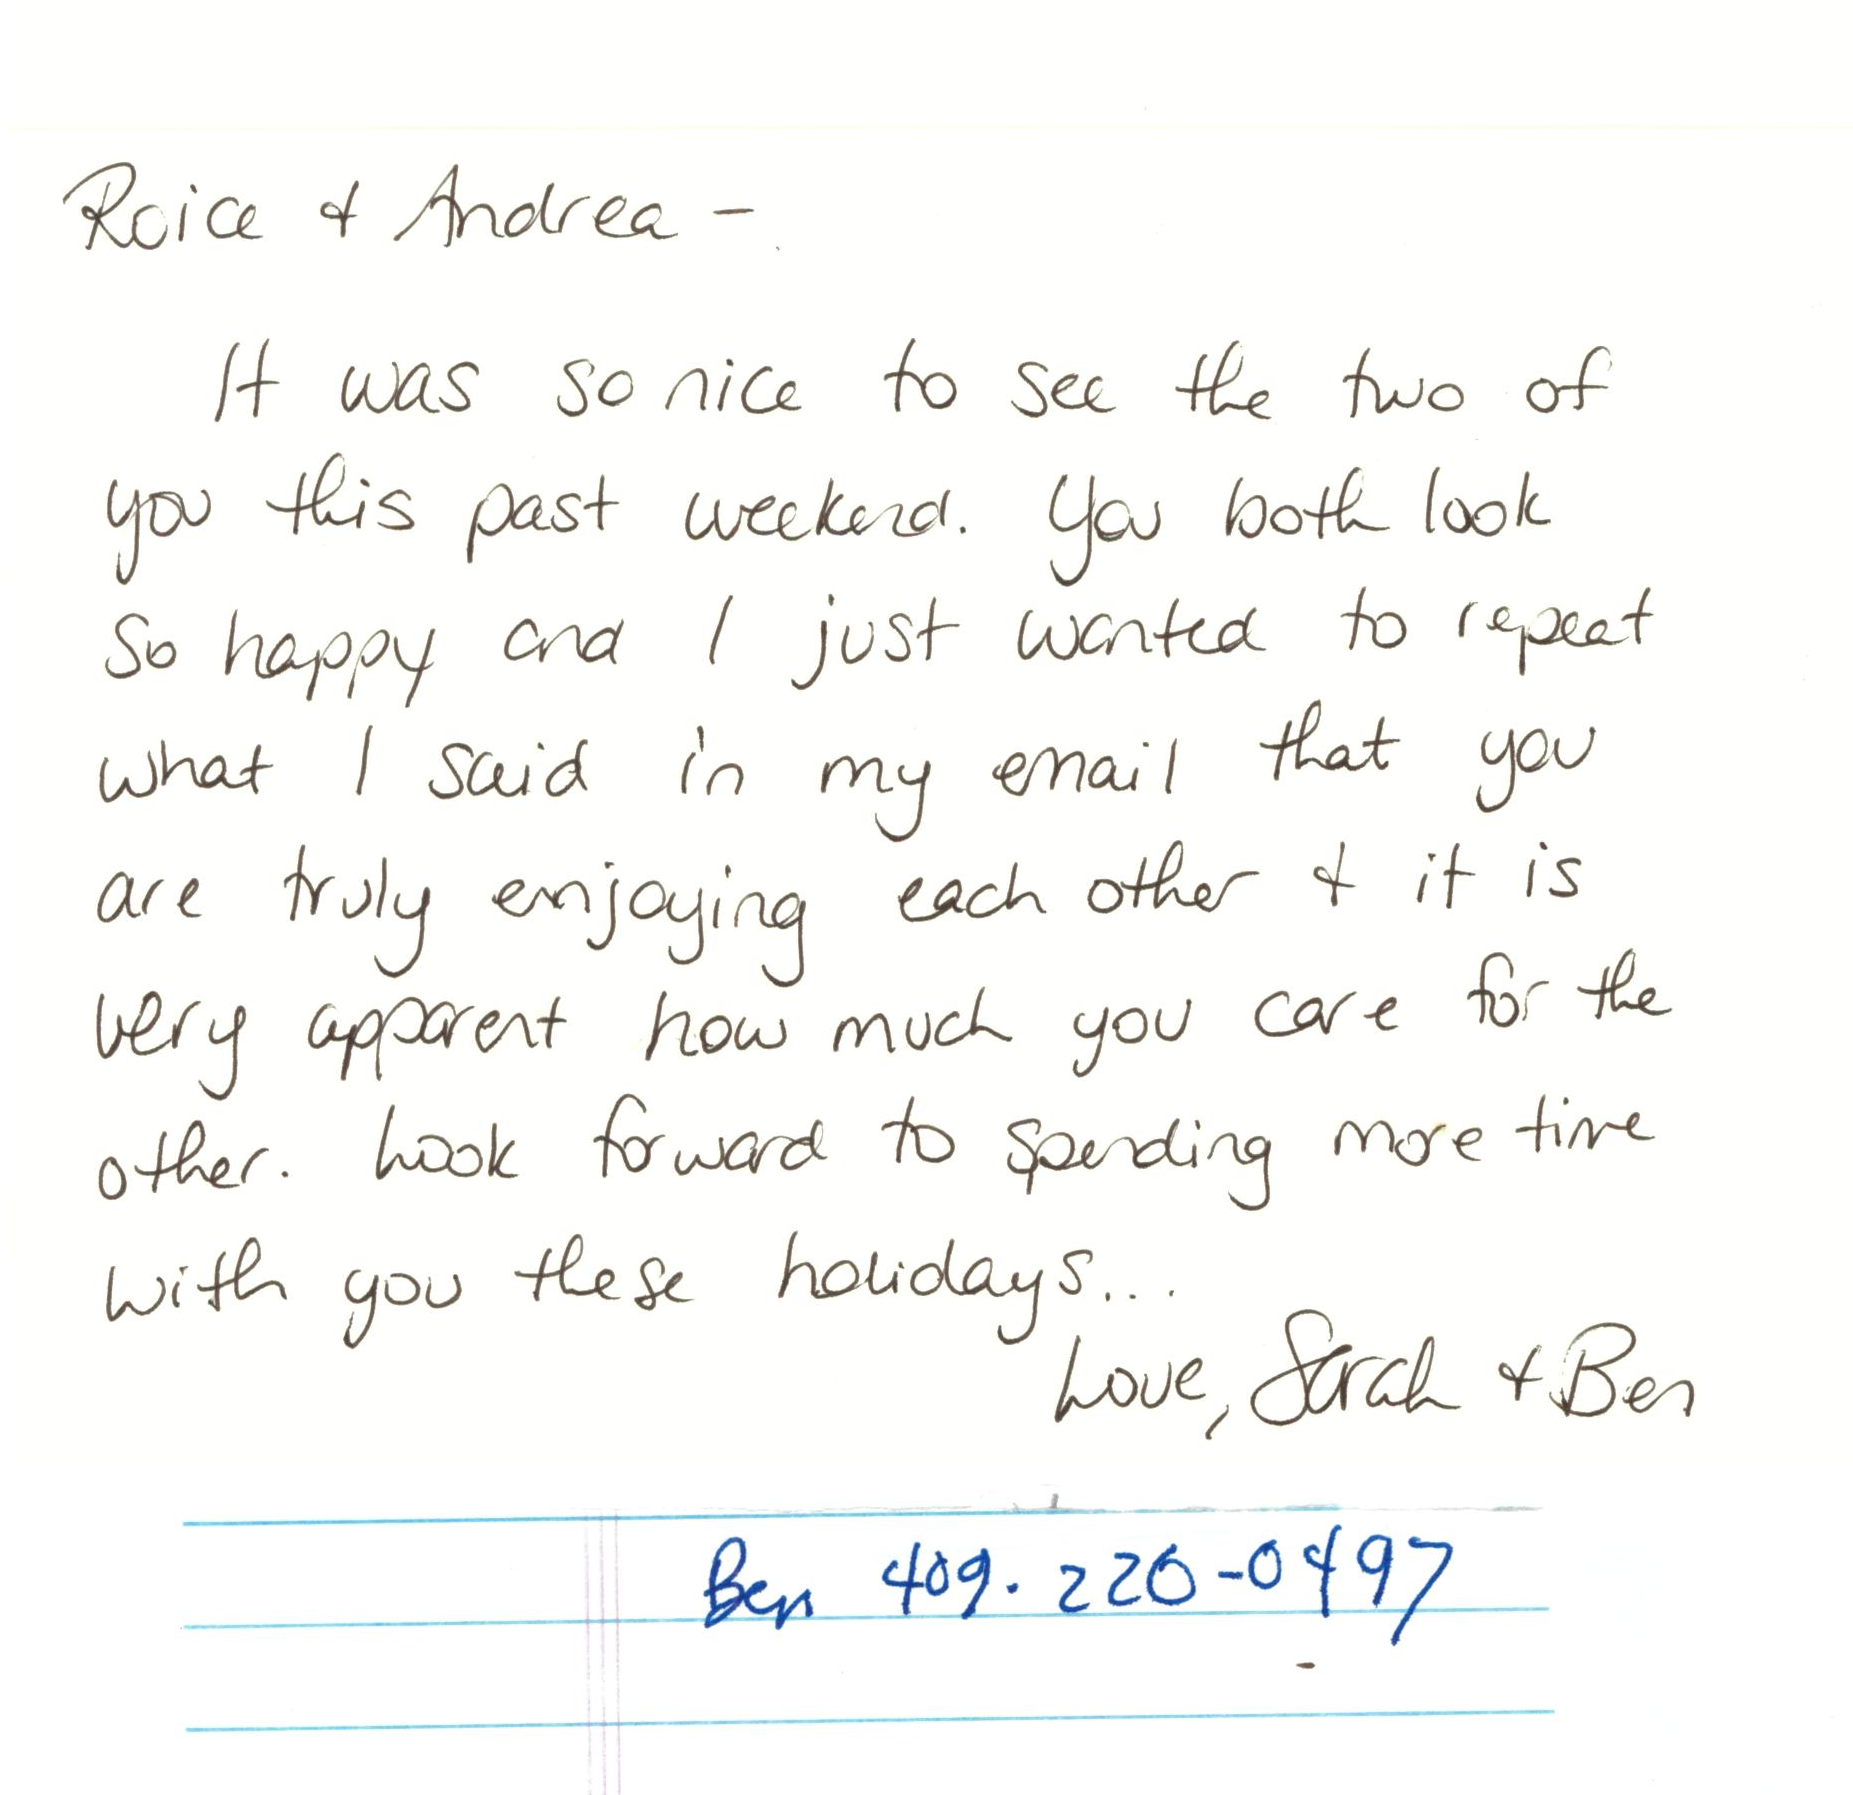 Roice & Andrea -
It was so nice to see the two of
you this past weekend. You both look
so happy and I just wanted to repeat
what I said in my email that you
are truly enjoying each other & it is
very apparent how much you care for the
other. Look forward to spending more time
with you these holidays...
Love, Sarah & Ben
Ben 409.220-0497